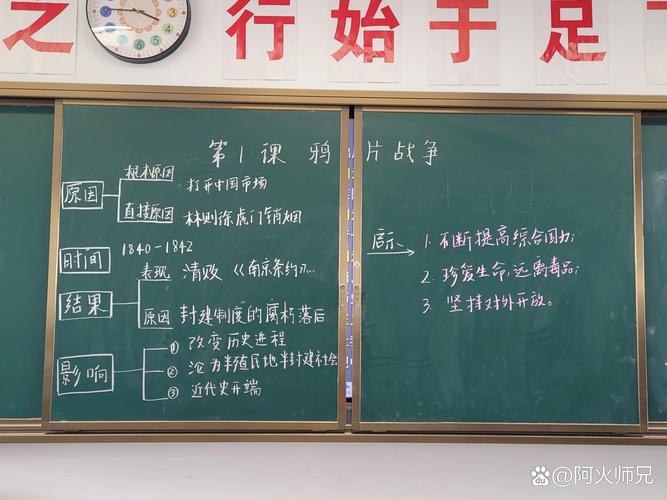 之 行始于足
第1课 鸦片战争
原因
根本原因 打开中国市场
直接原因 林则徐虎门销烟
时间 1840-1842
结果
表现 清败 《南京条约》…
原因 封建制度的腐朽落后
影响
① 改变历史进程
② 沦为半殖民地半封建社会
③ 近代史开端
启示
1. 不断提高综合国力;
2. 珍爱生命,远离毒品;
3. 坚持对外开放。
@阿火师兄